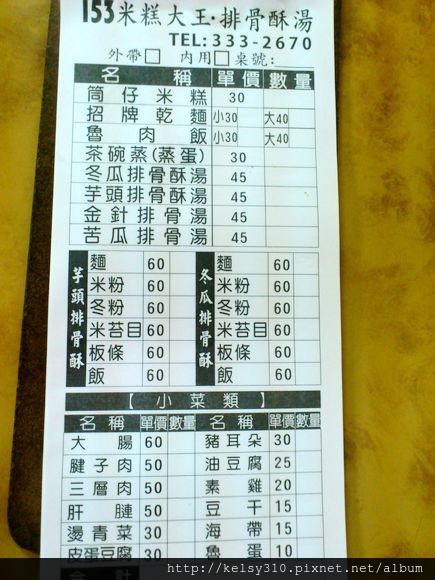 153米糕大王·排骨酥湯
TEL:333-2670
外帶□ 內用□桌號:
名稱 單價 數量
筒仔米糕 30
招牌乾麵 小30 大40
魯肉飯 小30 大40
茶碗蒸(蒸蛋) 30
冬瓜排骨酥湯 45
芋頭排骨酥湯 45
金針排骨湯 45
苦瓜排骨湯 45
芋頭排骨酥
麵 60
米粉 60
冬粉 60
米苔目 60
板條 60
飯 60
冬瓜排骨酥
麵 60
米粉 60
冬粉 60
米苔目 60
板條 60
飯 60
【小菜類】
名稱 單價 數量 名稱 單價 數量
大腸 60 豬耳朵 30
腱子肉 50 油豆腐 25
三層肉 50 素雞 20
肝腱 50 豆干 15
燙青菜 30 海帶 15
皮蛋豆腐 30 魯蛋 10
http://kelsy310.pixnet.net/album